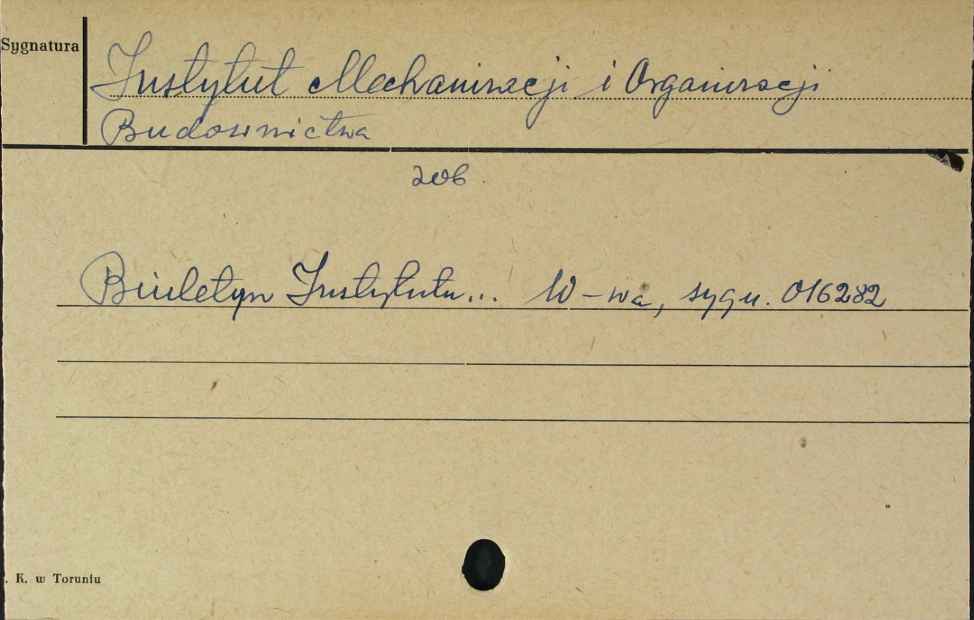 Sygnatura
Instytut Mechanizacji i Organizacji
Budownictwa
zob.
Biuletyn Instytutu... W-wa, sygn. 016282
. K. w Toruniu